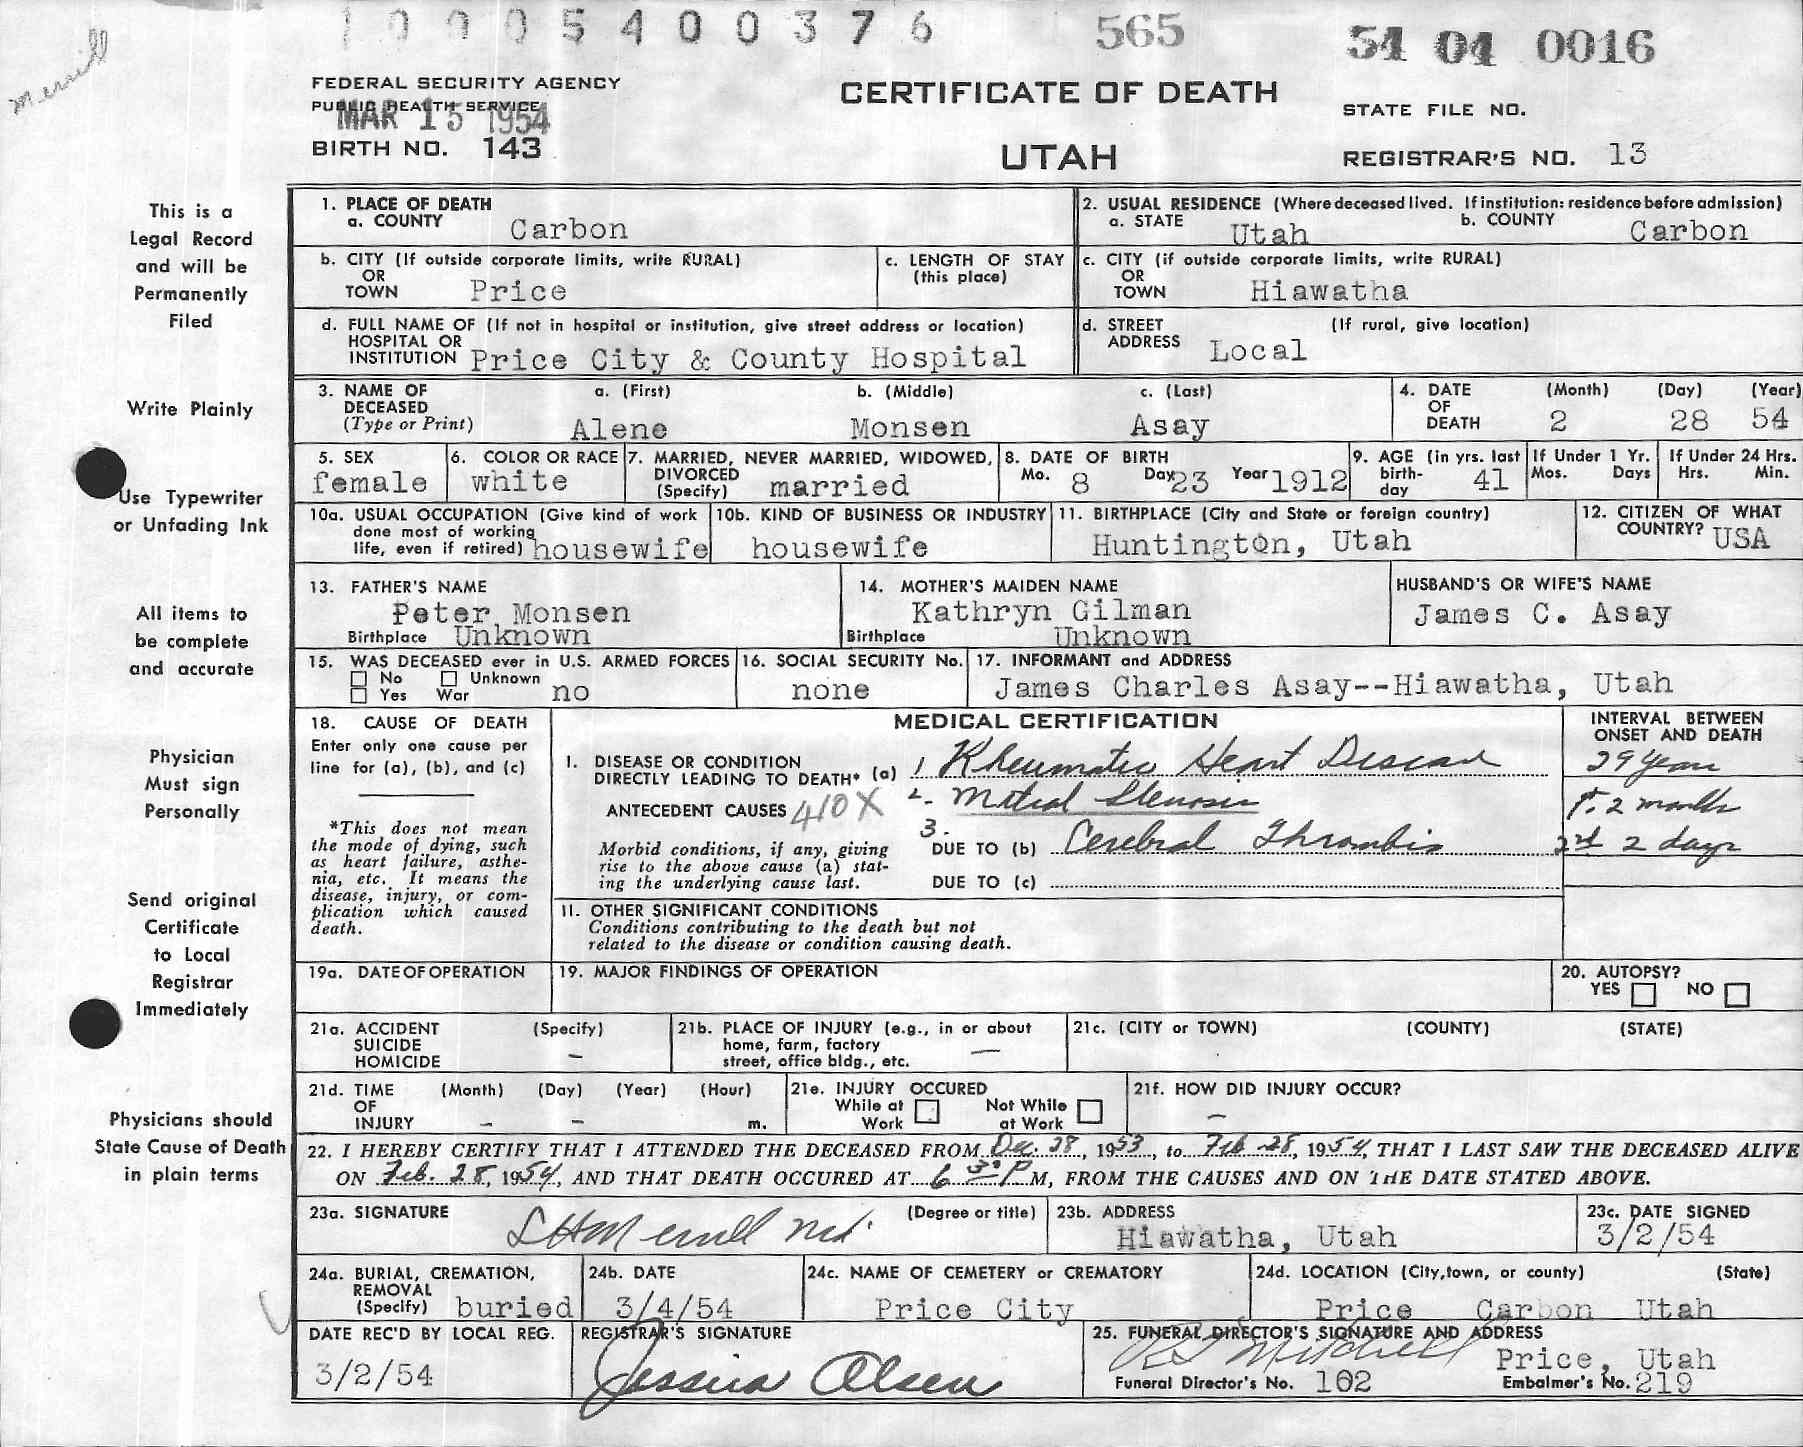 Merrill
10005400376 565 54 04 0016
FEDERAL SECURITY AGENCY
PUBLIC HEALTH SERVICE
MAR 15 1954
BIRTH NO. 143
CERTIFICATE OF DEATH
UTAH
STATE FILE NO.
REGISTRAR'S NO. 13
This is a
Legal Record
and will be
Permanently
Filed
Write Plainly
Use Typewriter
or Unfading Ink
All items to
be complete
and accurate
Physician
Must sign
Personally
Send original
Certificate
to Local
Registrar
Immediately
Physicians should
State Cause of Death
in plain terms
1. PLACE OF DEATH
a. COUNTY Carbon
2. USUAL RESIDENCE (Where deceased lived. If institution: residence before admission)
a. STATE Utah b. COUNTY Carbon
b. CITY (If outside corporate limits, write RURAL)
OR
TOWN Price
c. LENGTH OF STAY
(this place)
c. CITY (if outside corporate limits, write RURAL)
OR
TOWN Hiawatha
d. FULL NAME OF (If not in hospital or institution, give street address or location)
HOSPITAL OR
INSTITUTION Price City & County Hospital
d. STREET (If rural, give location)
ADDRESS Local
3. NAME OF a. (First) b. (Middle) c. (Last)
DECEASED
(Type or Print) Alene Monsen Asay
4. DATE (Month) (Day) (Year)
OF
DEATH 2 28 54
5. SEX
female
6. COLOR OR RACE
white
7. MARRIED, NEVER MARRIED, WIDOWED,
DIVORCED
(Specify) married
8. DATE OF BIRTH
Mo. 8 Day 23 Year 1912
9. AGE (in yrs. last
birth-
day 41
If Under 1 Yr.
Mos. Days
If Under 24 Hrs.
Hrs. Min.
10a. USUAL OCCUPATION (Give kind of work
done most of working
life, even if retired) housewife
10b. KIND OF BUSINESS OR INDUSTRY
housewife
11. BIRTHPLACE (City and State or foreign country)
Huntington, Utah
12. CITIZEN OF WHAT
COUNTRY? USA
13. FATHER'S NAME
Peter Monsen
Birthplace Unknown
14. MOTHER'S MAIDEN NAME
Kathryn Gilman
Birthplace Unknown
HUSBAND'S OR WIFE'S NAME
James C. Asay
15. WAS DECEASED ever in U.S. ARMED FORCES
No Unknown
Yes War no
16. SOCIAL SECURITY No.
none
17. INFORMANT and ADDRESS
James Charles Asay--Hiawatha, Utah
18. CAUSE OF DEATH
Enter only one cause per
line for (a), (b), and (c)
*This does not mean
the mode of dying, such
as heart failure, asthe-
nia, etc. It means the
disease, injury, or com-
plication which caused
death.
MEDICAL CERTIFICATION
INTERVAL BETWEEN
ONSET AND DEATH
I. DISEASE OR CONDITION
DIRECTLY LEADING TO DEATH* (a) 1 Rheumatic Heart Disease 29 years
ANTECEDENT CAUSES 410X 2. Mitral Stenosis 2 months
3.
Morbid conditions, if any, giving
rise to the above cause (a) stat-
ing the underlying cause last.
DUE TO (b) Cerebral Thrombis 2nd 2 days
DUE TO (c)
11. OTHER SIGNIFICANT CONDITIONS
Conditions contributing to the death but not
related to the disease or condition causing death.
19a. DATE OF OPERATION
19. MAJOR FINDINGS OF OPERATION
20. AUTOPSY?
YES NO
21a. ACCIDENT (Specify)
SUICIDE
HOMICIDE –
21b. PLACE OF INJURY (e.g., in or about
home, farm, factory
street, office bldg., etc. –
21c. (CITY or TOWN) (COUNTY) (STATE)
21d. TIME (Month) (Day) (Year) (Hour)
OF
INJURY – – m.
21e. INJURY OCCURED
While at Work Not While at Work
21f. HOW DID INJURY OCCUR?
–
22. I HEREBY CERTIFY THAT I ATTENDED THE DECEASED FROM Dec. 28, 1953, to Feb 28, 1954, THAT I LAST SAW THE DECEASED ALIVE
ON Feb. 28, 1954, AND THAT DEATH OCCURED AT 6 30 P M, FROM THE CAUSES AND ON THE DATE STATED ABOVE.
23a. SIGNATURE (Degree or title)
L H Merrill M.D.
23b. ADDRESS
Hiawatha, Utah
23c. DATE SIGNED
3/2/54
24a. BURIAL, CREMATION,
REMOVAL
(Specify) buried
24b. DATE
3/4/54
24c. NAME OF CEMETERY or CREMATORY
Price City
24d. LOCATION (City, town, or county) (State)
Price Carbon Utah
DATE REC'D BY LOCAL REG.
3/2/54
REGISTRAR'S SIGNATURE
Jessica Olsen
25. FUNERAL DIRECTOR'S SIGNATURE AND ADDRESS
Mitchell Price, Utah
Funeral Director's No. 102 Embalmer's No. 219